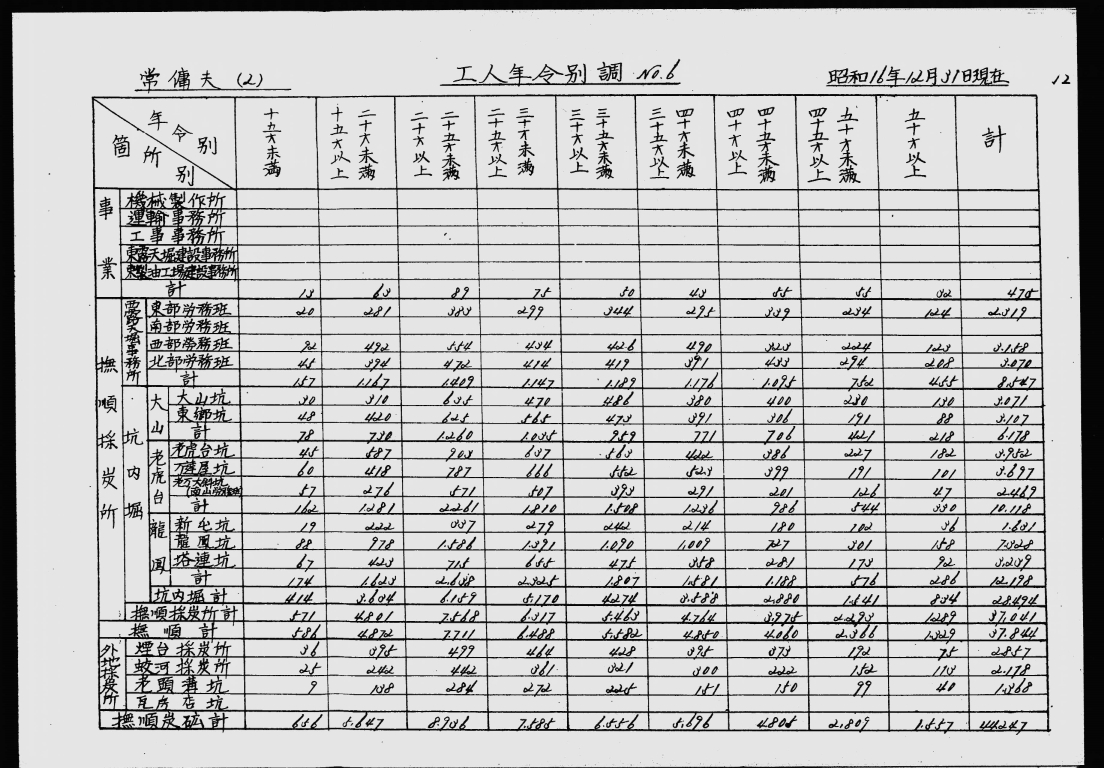 常傭夫 (2) 工人年令別調 No.6 昭和16年12月31日現在 12
年令別 箇所別 十五才未満 十五才以上二十才未満 二十才以上二十五才未満 二十五才以上三十才未満 三十才以上三十五才未満 三十五才以上四十才未満 四十才以上四十五才未満 四十五才以上五十才未満 五十才以上 計
事業
機械製作所
運輸事務所
工事事務所
東露天堀建設事務所
東製油工場建設事務所
計 13 63 89 75 50 43 55 55 32 475
撫順採炭所
露天堀事務所
東部労務班 20 281 383 299 344 295 339 234 124 2.319
南部労務班
西部労務班 92 492 554 434 426 490 323 224 123 3.158
北部労務班 45 394 472 414 419 391 433 294 208 3.070
計 157 1.167 1.409 1.147 1.189 1.176 1.095 752 455 8.547
坑内堀
大山
大山坑 30 310 635 470 486 380 400 230 130 3.071
東郷坑 48 420 625 565 473 391 306 191 88 3.107
計 78 730 1.260 1.035 959 771 706 421 218 6.178
老虎台
老虎台坑 45 587 903 637 563 422 386 227 182 3.952
万達屋坑 60 418 787 666 552 523 399 191 101 3.697
57 276 571 507 393 291 201 126 47 2.469
計 162 1.281 2.261 1.810 1.508 1.236 986 544 330 10.118
龍鳳
新屯坑 19 222 337 279 242 214 180 102 36 1.631
龍鳳坑 88 978 1.586 1.391 1.090 1.009 727 301 158 7.328
塔連坑 67 423 715 655 475 358 281 173 92 3.239
計 174 1.623 2.638 2.325 1.807 1.581 1.188 576 286 12.198
坑内堀計 414 3.634 6.159 5.170 4.274 3.588 2.880 1.541 834 28.494
撫順採炭所計 571 4.801 7.568 6.317 5.463 4.764 3.975 2.293 1.289 37.041
撫順計 586 4.872 7.711 6.488 5.582 4.850 4.060 2.366 1.329 37.844
外地採炭所
煙台採炭所 36 395 499 464 428 395 373 192 75 2.857
蛟河採炭所 25 242 442 361 321 300 222 152 113 2.178
老頭溝坑 9 138 284 272 225 151 150 99 40 1.368
瓦房店坑
撫順炭砿計 656 5.647 8.936 7.585 6.556 5.696 4.805 2.809 1.557 44.247